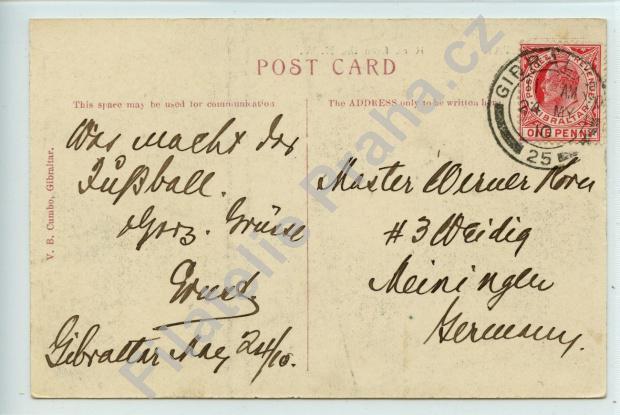 POST CARD
This space may be used for communication
The ADDRESS only to be written here
V. B. Cumbo, Gibraltar.
Was macht das
Fußball.
Herz. Grüsse
Ernst.
Gibraltar May 24/10.
Master Werner
#3 Weidig
Meiningen
Germany.
POSTAGE REVENUE
GIBRALTAR
ONE PENNY
GIBRAL
AM
MY
10
25
Filatelie Praha.cz